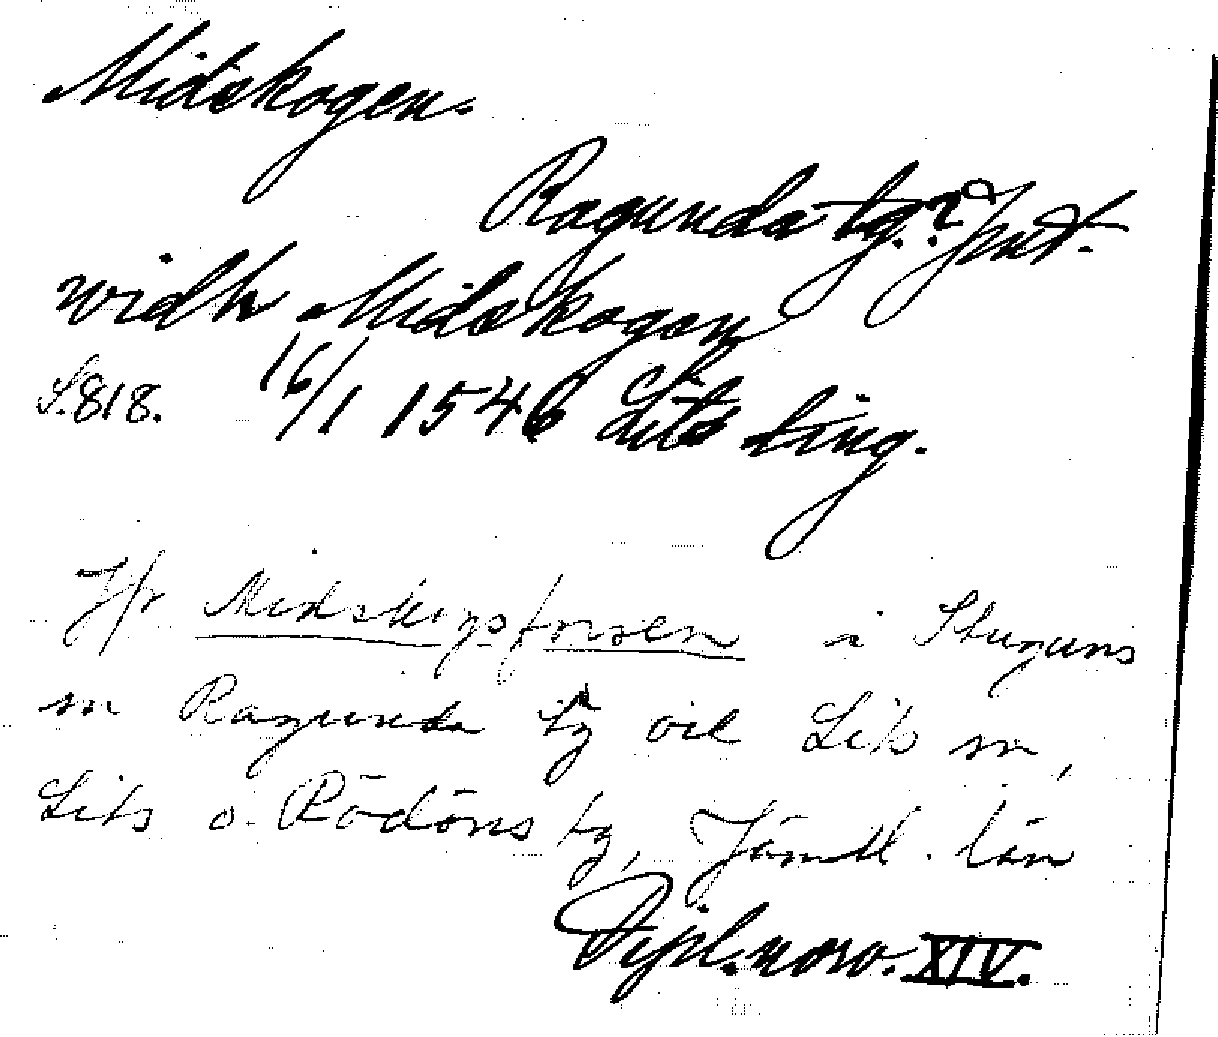 Midskogen.
Ragunda tg.? Jmt.
widh Midskogen
S. 818. 16/1 1546 Lits ting.
Jfr Midskogsforsen i Stuguns
sn Ragunda tg vid Lits sn,
Lits o. Rödöns tg, Jämtl. län
Dipl. norv. XIV.